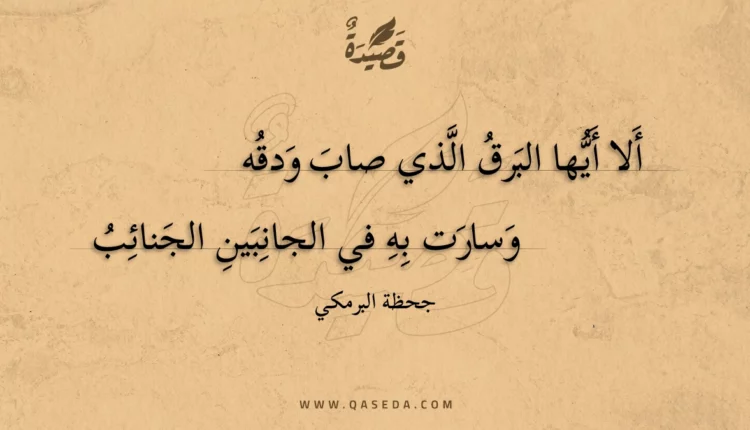 قَصِيدَةٌ
أَلا أَيُّها البَرقُ الَّذي صابَ وَدقُه
وَسارَت بِهِ في الجانِبَينِ الجَنائِبُ
جحظة البرمكي
WWW.QASEDA.COM